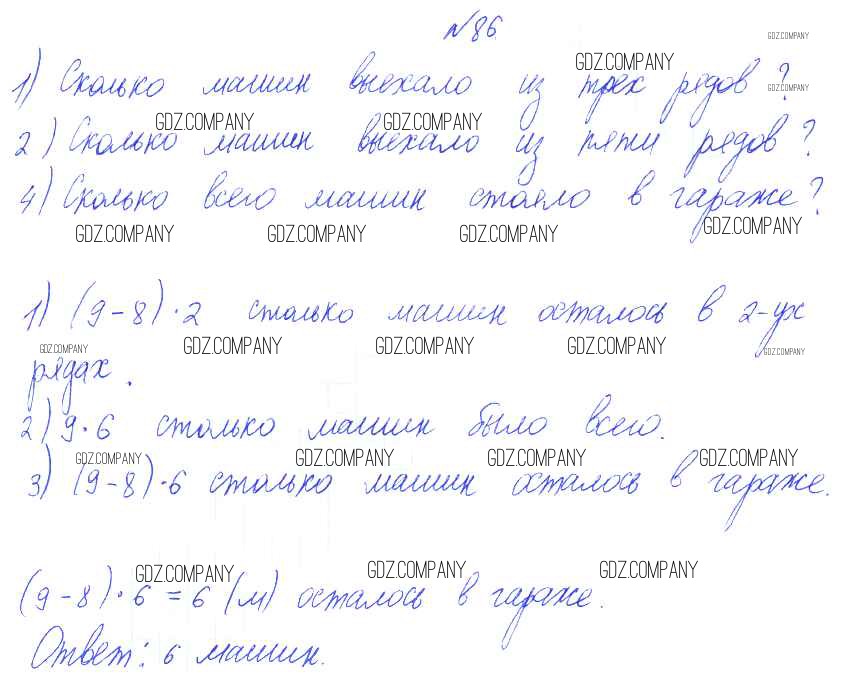 №86.
GDZ.COMPANY
1) Сколько машин выехало из трех рядов?
GDZ.COMPANY
GDZ.COMPANY
GDZ.COMPANY GDZ.COMPANY
2) Сколько машин выехало из пяти рядов?
4) Сколько всего машин стояло в гараже?
GDZ.COMPANY GDZ.COMPANY GDZ.COMPANY GDZ.COMPANY
1) (9-8)·2 столько машин осталось в 2-ух
GDZ.COMPANY GDZ.COMPANY GDZ.COMPANY GDZ.COMPANY GDZ.COMPANY
рядах.
2) 9·6 столько машин было всего.
GDZ.COMPANY GDZ.COMPANY GDZ.COMPANY GDZ.COMPANY
3) (9-8)·6 столько машин осталось в гараже.
GDZ.COMPANY GDZ.COMPANY GDZ.COMPANY
(9-8)·6=6 (м) осталось в гараже.
Ответ: 6 машин.